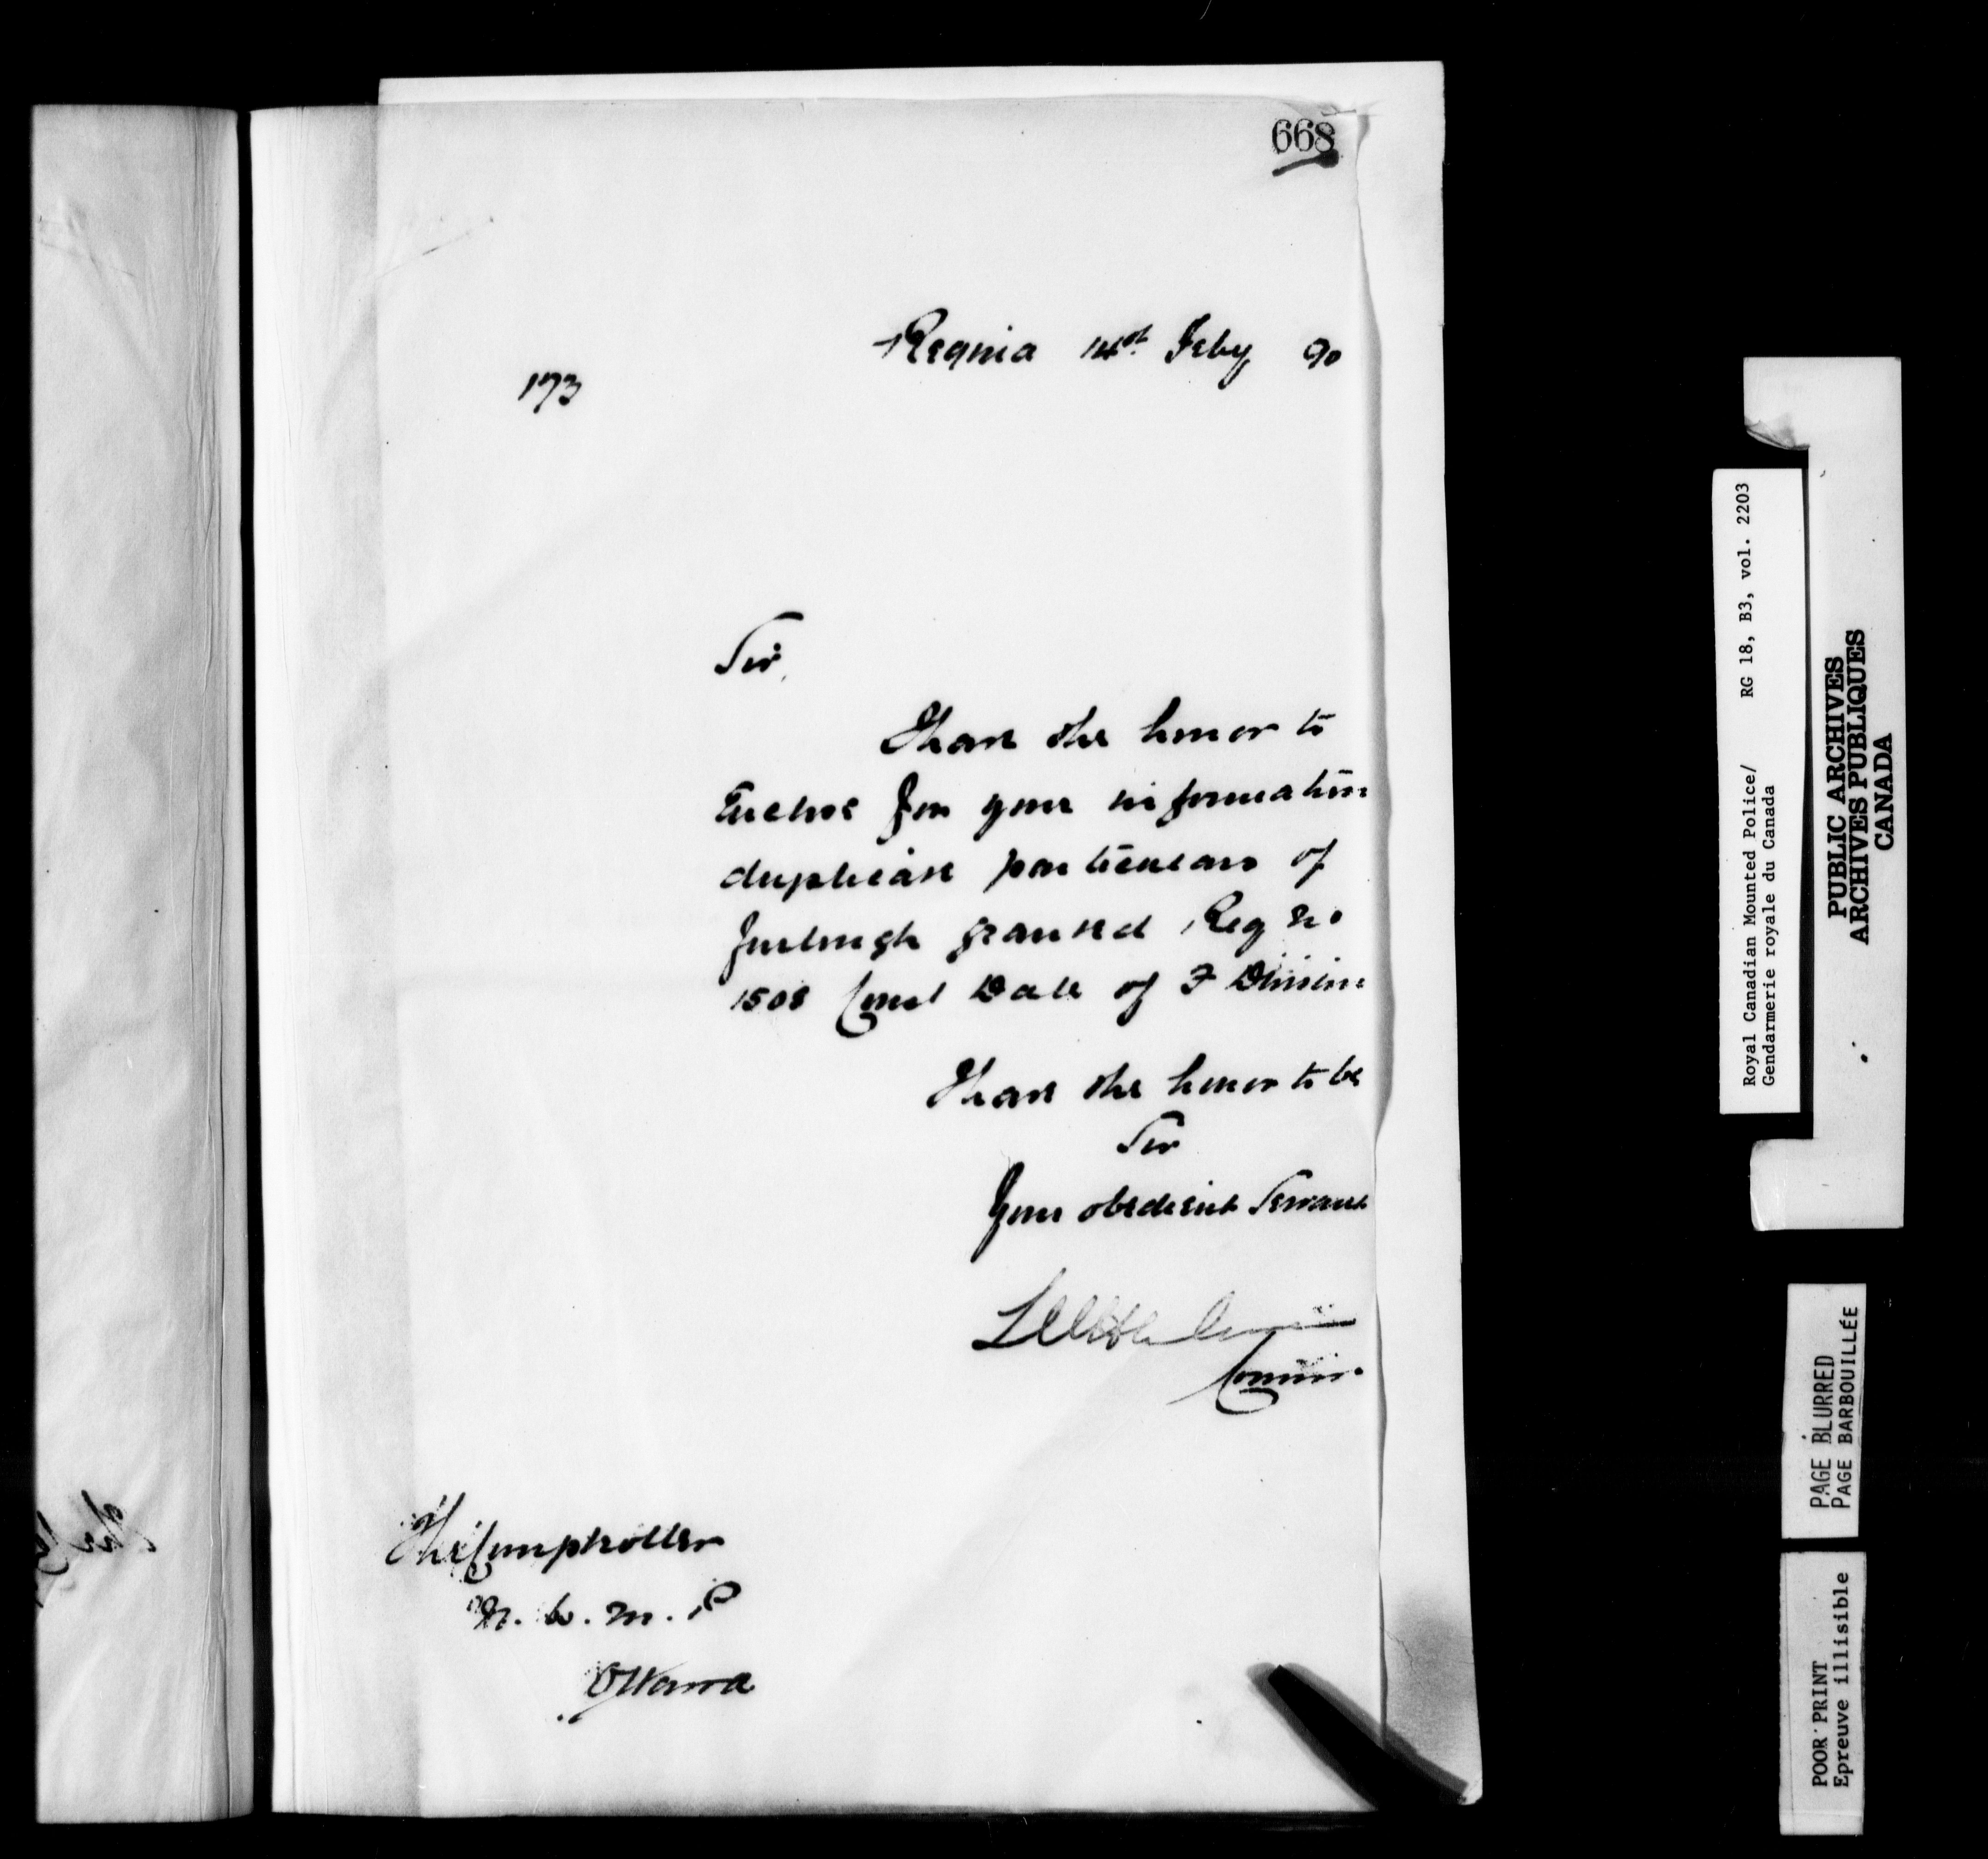 668
Regina 14th Feby 90
173
Sir,
I have the honor to
Enclose for your information
duplicate particulars of
furlough granted Reg No
1508 Const Dale of F Division
I have the honor to be
Sir
Your obedient Servant
Commr.
The Comptroller
N. W. M. P
Ottawa
Royal Canadian Mounted Police/ RG 18, B3, vol. 2203
Gendarmerie royale du Canada
PUBLIC ARCHIVES
ARCHIVES PUBLIQUES
CANADA
PAGE BLURRED
PAGE BARBOUILLÉE
POOR PRINT
Epreuve illisible